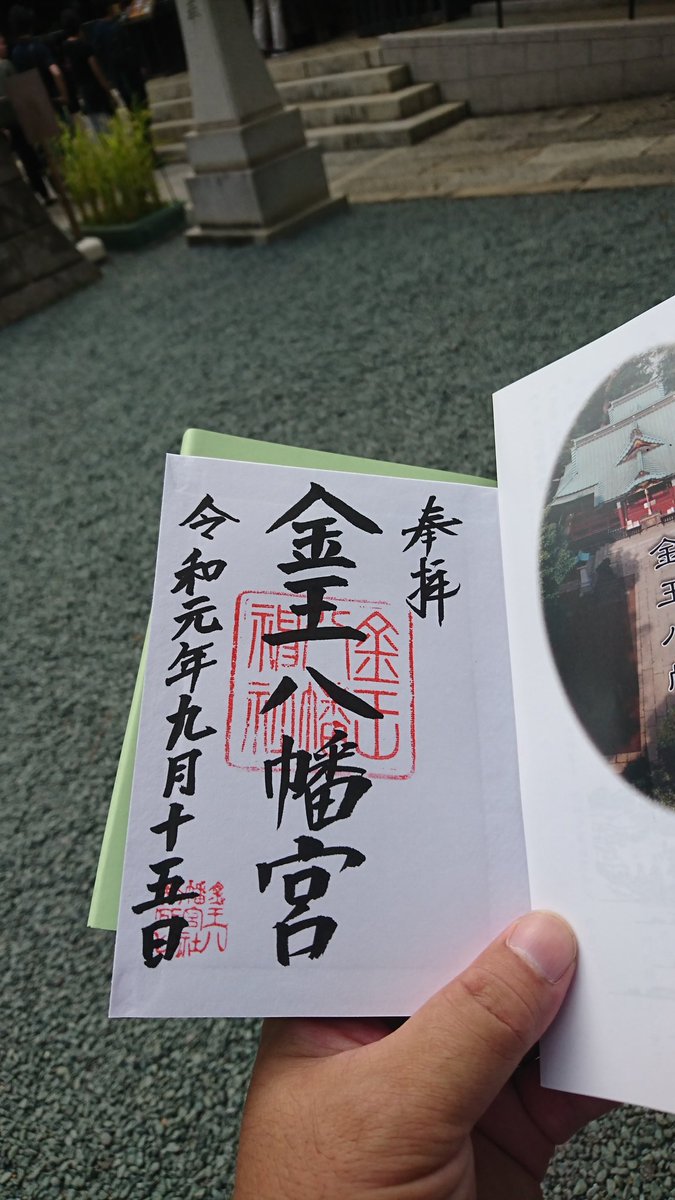 奉拝
金王八幡宮
令和元年九月十五日
金王
八幡
神社
金王八
幡宮社
金王八幡